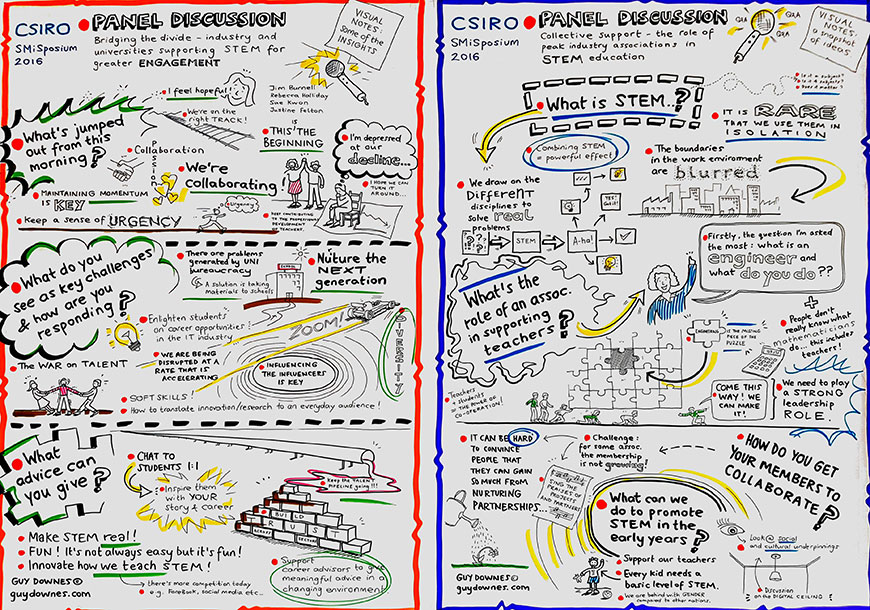 CSIRO
SMiSposium
2016
PANEL DISCUSSION
Bridging the divide - industry and
universities supporting STEM for
greater ENGAGEMENT
VISUAL
NOTES:
Some of the
INSIGHTS
I feel hopeful!
Jim Burnell
Rebecca Halliday
Sue Kwon
Justine Felton
We're on the
right TRACK!
What's jumped
out from this
morning?
Collaboration
PASSION
IS
THIS THE
BEGINNING
I'm depressed
at our
decline...
We're
collaborating!
I HOPE WE CAN
TURN IT
AROUND...
MAINTAINING MOMENTUM
IS KEY
Keep a sense of URGENCY
KEEP CONTRIBUTING
TO THE PROFESSIONAL
DEVELOPMENT
OF TEACHERS.
What do you
see as key challenges
& how are you
responding?
There are problems
generated by UNI
bureaucracy
A solution is taking
materials to schools
SCHOOL
Nuture the
NEXT
generation
Enlighten students
on career opportunities!
in the IT industry
ZOOM!
DIVERSITY
WE ARE BEING
DISRUPTED AT A
RATE THAT IS
ACCELERATING
INFLUENCING
THE INFLUENCERS
IS KEY
The WAR on TALENT
SOFT SKILLS!
How to translate innovation/research to an everyday audience!
What
advice can
you give?
CHAT TO
STUDENTS 1:1
Inspire them
with YOUR
story & career
Keep the TALENT
PIPELINE going!!!
BUILD
R U S
ACROSS
SECTORS
Make STEM real!
FUN! It's not always easy but it's fun!
Innovate how we teach STEM!
Support
career advisors to give
meaningful advice in a
changing environment
GUY DOWNES©
guydownes.com
there's more competition today
e.g. FaceBook, social media etc...
CSIRO
SMiSposium
2016
PANEL DISCUSSION
Collective support - the role of
peak industry associations in
STEM education
Q&A
Q&A
Q&A
VISUAL
NOTES:
a snapshot
of ideas
What is STEM..?
Is it a subject?
Is it a subjects?
Does it matter?
IT IS RARE
THAT WE USE THEM IN
ISOLATION
Combining STEM
= powerful effect
The boundaries
in the work enviroment
are blurred
We draw on the
DIFFERENT
disciplines to
solve real
problems
YES!
Got it!
STEM
A-ha!
Firstly, the question I'm asked
the most: what is an
engineer and
what do you do??
What's the
role of an assoc.
in supporting
teachers?
ENGINEERING
IS THE MISSING
PIECE OF THE
PUZZLE
+
People don't
really know what
mathematicians
do... this includes
teachers!
Teachers
+ students
= THE POWER OF
CO-OPERATION!
COME THIS
WAY! WE CAN
MAKE IT!
We need to play
a STRONG
leadership
ROLE.
IT CAN BE HARD
TO CONVINCE
PEOPLE THAT
THEY CAN GAIN
SO MUCH FROM
NURTURING
PARTNERSHIPS...
Challenge:
for some assoc.
the membership
is not growing!
HOW DO YOU GET
YOUR MEMBERS TO
COLLABORATE?
SING THE
PRAISES OF
PROJECTS
AND PARTNERS!
What can we
do to promote
STEM in the
early years?
Look @ social
and cultural underpinnings
Support our teachers
Every kid needs a
basic level of STEM.
We are behind with GENDER
compared to other nations.
Discussion
on the DIGITAL CEILING!
GUY DOWNES©
guydownes.com